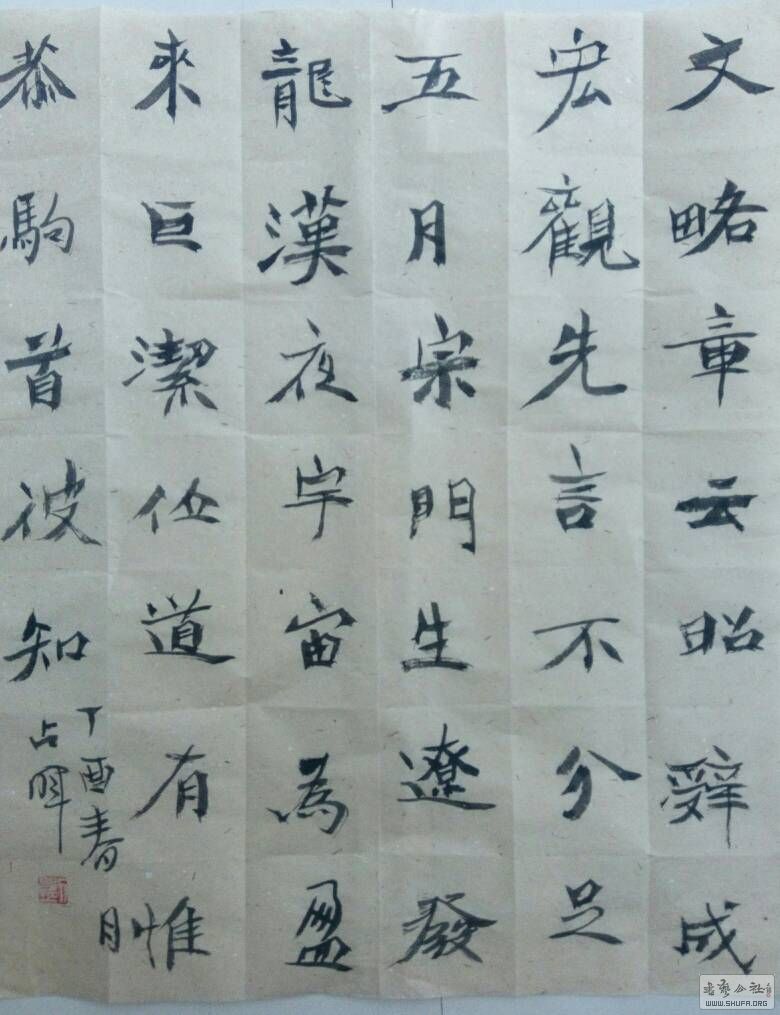 文略章云昭辤成
宏觀先言不分足
五月宗門生遼發
龍漢夜宇宙為盈
來巨潔位道有惟
恭駒首彼知
丁酉春月
占暉
書法公社
WWW.SHUFA.ORG